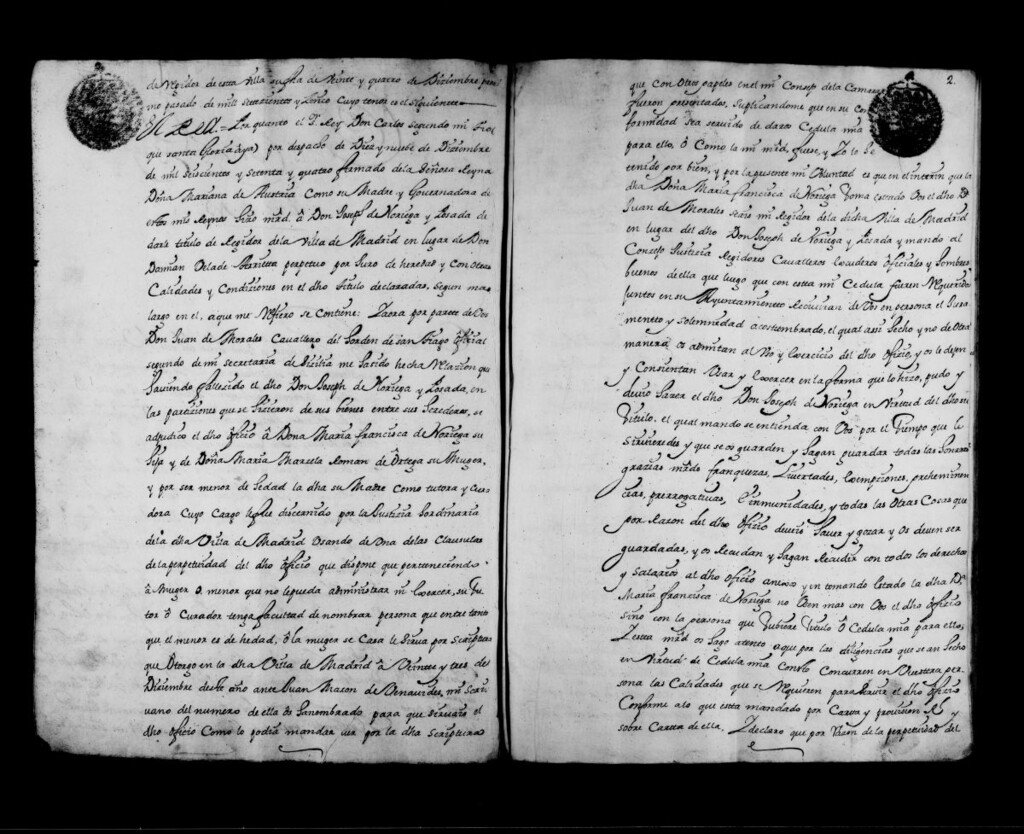 de Regidor de esta Villa su fha de Veinte y quatro de Diziembre
mo pasado de mill setezientos y Cuyo tenor es el siguiente
El Rey = Por quanto el Sr Rey Don Carlos segundo mi Tio
que santa Gloria aya) por despacho de Diez y nuebe de Diziembre
de mil seiscientos y setenta y quatro firmado de la señora Reyna
Doña Mariana de Austria Como su Madre y Governadora de
estos mis Reynos hizo mrd. â Don Joseph de Noriega y Losada de
darle titulo de Regidor dela Villa de Madrid en lugar de Don
Damian perpetuo por Juro de heredad y Con otras
Calidades y Condiziones en el dho titulo declaradas, segun mas
largo en el, aque me Refiero se contiene: Y aora por parte de Vos
Don Juan de Morales Cavallero del horden de san Tiago ôfizial
segundo de mi secretaria de Sizilia me ha sido hecha Relazion que
haviendo fallezido el dho Don Joseph de Noriega y Losada, en
las partiziones que se hizieron de sus bienes entre sus herederos, se
adjudico el dho ôfizio â Doña Maria francisca de Noriega su
hija y de Doña Maria Marcela Roman de Ortega su Muger,
y por ser menor de hedad la dha su Madre Como tutora y Cura
dora Cuyo Cargo le fue discernido por la Justicia hordinaria
dela dha Villa de Madrid Usando de Una delas Clausulas
de la perpetuidad del dho ôfizio que dispone que perteneciendo
â Muger o menor que no lepueda administrar ni Exercer, su tu
tor ô Curador tenga facultad de nombrar persona que entre tanto
que el menor es de hedad, ô la muger se Casa le sirva por scriptura
que otorgo en la dha Villa de Madrid â Veinte y tres de
Diziembre deste año ante Juan Mazon de Benavides, mi scri
uano del numero de ella ôs ha nombrado para que sirvais el
dho ôficio Como lo podia mandar ver por la dha scriptura
2.
que con Otros papeles en el mi Consejo dela Camara
fueron presentados, suplicandome que en su Con
formidad sea servido de daros Cedula mia
para ello ô Como la mi mrd. fuese, y Yo lo he
tenido por bien, y por la presente mi Voluntad es que en el interin que la
dha Doña Maria francisca de Noriega toma estado Vos el dho Dn
Juan de Morales seais mi Regidor dela dicha Villa de Madrid
en lugar del dho Don Joseph de Noriega y Losada y mando al
Concejo Justicia Regidores Cavalleros Escuderos ôficiales y hombres
buenos de ella que luego que con esta mi Cedula fueren Requeridos
Juntos en su Ayuntamiento Reciuan de Vos en persona el Jura
mento y solemnidad acostumbrado, el qual assi fecho y no de Otra
manera os admitan al Vso y Exercicio del dho oficio, y os le dejen
y Consientan Usar y Exercer en la forma que lo hizo, pudo y
devio haver el dho Don Joseph de Noriega en Virtud del dho su
Titulo, el qual mando se entienda con Vos por el Tiempo que le
sirvieredes y que se os guarden y hagan guardar todas las honrras
grazias mrds franquezas, Livertades, Exempziones, preheminen
cias, prerrogativas, E inmunidades, y todas las Otras Cosas que
por Razon del dho Oficio deveis haver y gozar y Os deven ser
guardadas, y os Recudan y hagan Recudir con todos los derechos
y salarios al dho Oficio anexos y en tomando estado la dha Da.
Maria francisca de Noriega no Usen mas con Vos el dho ôficio
sino con la persona que tubiere titulo ô Cedula mia para ello,
Y esta mrd os hago atento aque por las diligencias que se an fecho
en Virtud de Cedula mia Consto Concurren en Vuestra per
sona las Calidades que se Requieren para servir el dho ôficio
Conforme alo que esta mandado por Carta y provision Rl y
sobre Carta de ella, Y declaro que por Razon de la perpetuidad del